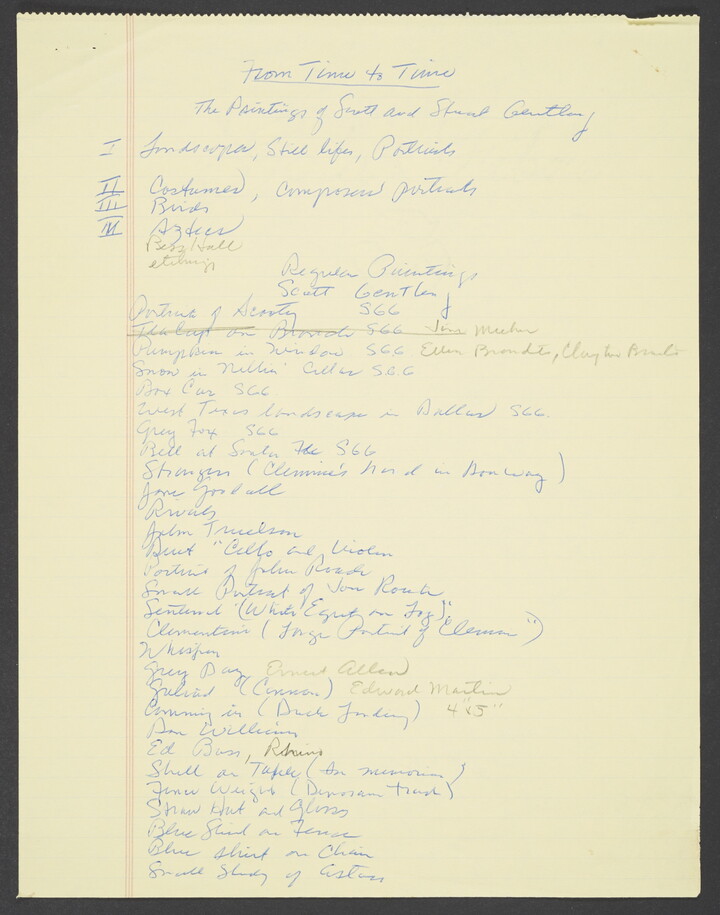 From Time to Time
The Paintings of Scott and Stuart Gentling
I Landscapes, Still lifes, Portraits
II Costumes, Composed portraits
III Birds
IV Aztecs
Bess Hall
etchings
Regular Paintings
Scott Gentling
Portrait of Scooty SGG
Tea Cup on Brocade SGG
Pumpkin in Window SGG
Snow in Nellie's Cellar SGG
Box Car SGG
West Texas landscape in Dallas SGG.
Grey Fox SGG
Bell at Santa SGG
Strangers (Clemmie's hand in Doorway)
Jane Goodall
Rivals
John
Duet "Cello and Violin
Portrait of John Roach
Small Portrait of Jon Roach
Sentinel "(White Egret on Log)"
Clementine (Large Portrait of Clemmie")
Whisper
Grey Day Ernest Allen
(Cannon) Edward Martin
Comming in (Duck Landing) 4"x5"
Don Williams
Ed Bass, Rhino
Shell on Table (In memoriam)
Fence Weight (Dinosaur track)
Straw Hat and Glasses
Blue Shirt on Fence
Blue shirt on Chair
Small Study of